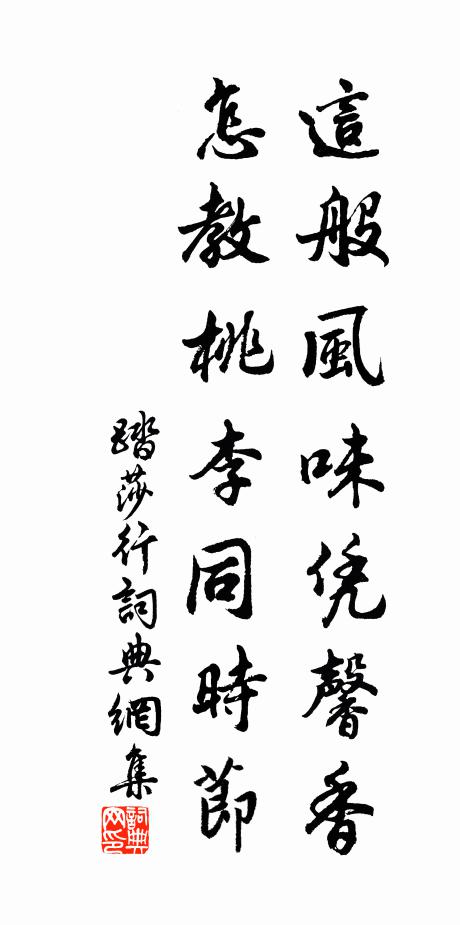 這般風味凭馨香
怎教桃李同時節
踏莎行詞典網集
詞典
网印